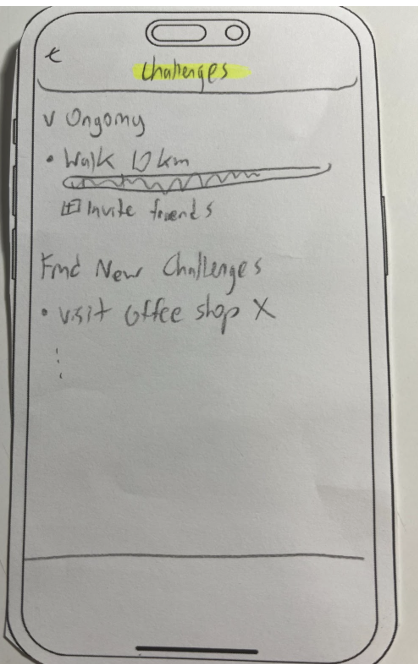 Challenges
v Ongoing
• Walk 10 km
Invite friends
Find New Challenges
• visit coffee shop X